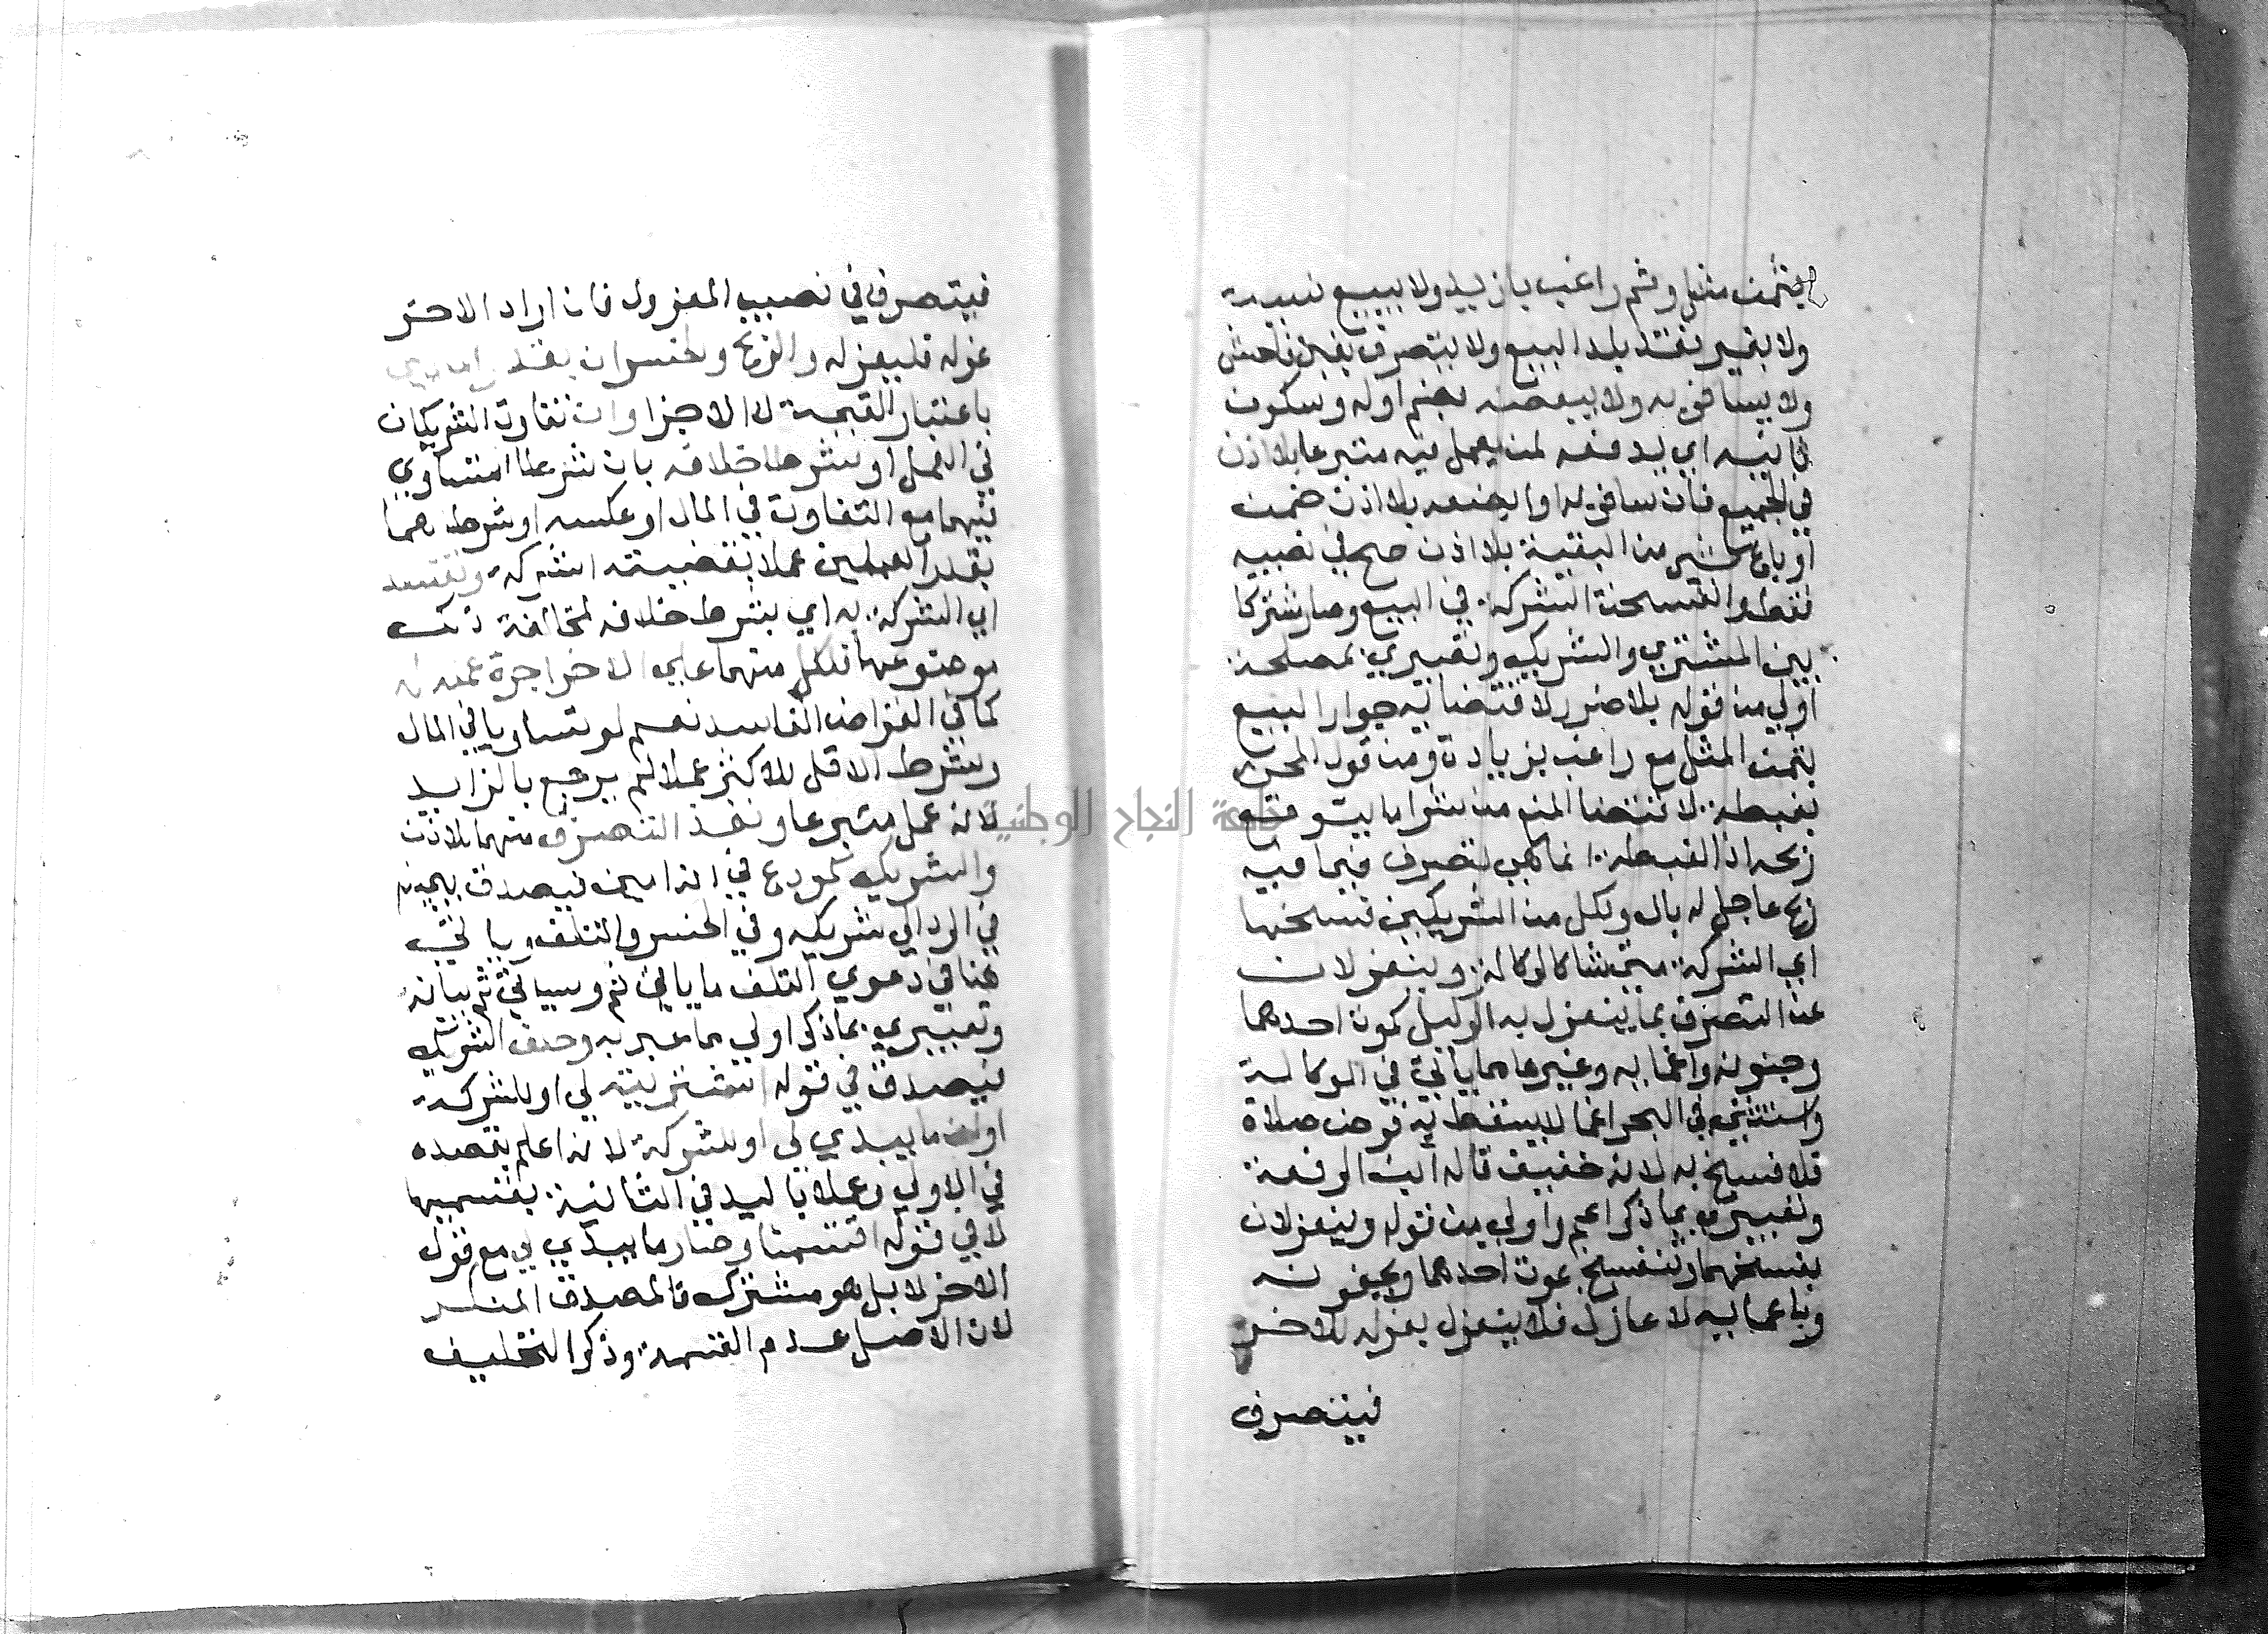 بثمن مثل وثم راغب بازيد ولا يبيع نسيئة
ولا بغير نقد بلد البيع ولا يتصرف بغبن فاحش
ولا يسافر به ولا يبضعه بضم اوله وسكون
ثانيه اي يدفعه لمن يعمل فيه متبرعا بلا اذن
في الجميع فان سافر به او ابضعه بلا اذن ضمن
او باع بشي من البقية بلا اذن صح في نصيبه
فقط وانفسخت الشركة في البيع وصار مشتركا
بين المشتري والشريك وتعبيري بمصلحة
اولي من قوله بلا ضرر لاقتضايه جواز البيع
بثمن المثل مع راغب بزيادة ومن قول المحرر
بغبطة لاقتضا المنع من شرا ما يتوقع
ربحه اذ الغبطة انما هي تصرف فيما فيه
ربح عاجل له بال ولكل من الشريكين فسخها
اي الشركة متي شا كالوكالة وينعزلان
عن التصرف بما ينعزل به الوكيل كموت احدهما
وجنونه واغمايه وغيرها مما ياتي في الوكالة
واستثني في البحر اغما لا يسقط به فرض صلاة
فلا فسخ به لانه خفيف قاله ابن الرفعة
وتعبيري بما ذكر اعم واولي من قوله وينعزلان
بفسخهما وتنفسخ بموت احدهما وبجنونه
وباغمايه لا عازل فلا ينعزل بعزله للاخر
فيتصرف
فيتصرف في نصيب المعزول فان اراد الاخر
عزله فليعزله والربح والخسران بقدر المالين
باعتبار القيمة لا الاجزا وان تفاوت الشريكان
في العمل او شرطا خلافه بان شرطا التساوي
فيهما مع التفاوت في المال او عكسه او شرطاهما
بقدر العملين عملا بقضية الشركة وتفسد
اي الشركة به اي بشرط خلافه لمخالفة ذلك
موضوعها فلكل منهما علي الاخر اجرة عمله له
كما في القراض الفاسد نعم لو تساويا في المال
وشرط الاقل للاكثر عملا لم يرجع بالزايد
لانه عمل متبرعا ونفذ التصرف منهما للاذن
والشريك كمودع في انه امين فيصدق بيمينه
في الرد الي شريكه وفي الخسر والتلف وياتي
هنا في دعوي التلف ما ياتي ثم وسياتي ثم بيانه
وتعبيري بما ذكر اولي مما عبر به وحلف الشريك
فيصدق في قوله اشتريته لي او للشركة
او ان ما بيدي لي او للشركة لانه اعلم بقصده
في الاولي وعملا باليد في الثانية بقسميها
لا في قوله اقتسمنا وصار ما بيدي لي مع قول
الاخر لا بل هو مشترك فالمصدق المنكر
لان الاصل عدم القسمة وذكر التحليف
جامعة النجاح الوطنية